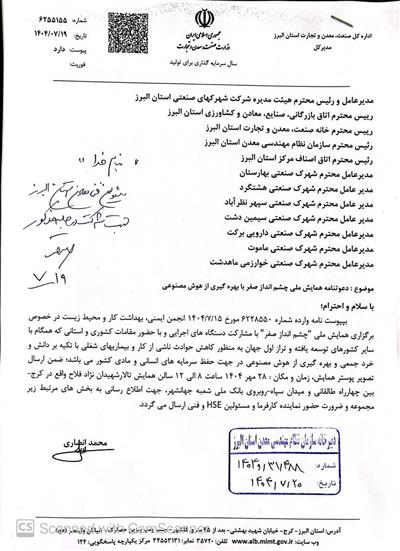 اداره کل صنعت، معدن و تجارت استان البرز
مدیرکل
جمهوری اسلامی ایران
وزارت صنعت، معدن و تجارت
سال سرمایه گذاری برای تولید
شماره: ۶۲۵۵۱۵۵
تاریخ: ۱۴۰۴/۰۷/۱۹
پیوست: دارد
فوریت:
مدیرعامل و رئیس محترم هیئت مدیره شرکت شهرکهای صنعتی استان البرز
رییس محترم اتاق بازرگانی، صنایع، معادن و کشاورزی استان البرز
رییس محترم خانه صنعت، معدن و تجارت استان البرز
رئیس محترم سازمان نظام مهندسی معدن استان البرز
رئیس محترم اتاق اصناف مرکز استان البرز
مدیرعامل محترم شهرک صنعتی بهارستان
مدیر عامل محترم شهرک صنعتی هشتگرد
مدیر عامل محترم شهرک صنعتی سپهر نظرآباد
مدیر عامل محترم شهرک صنعتی سیمین دشت
مدیر عامل محترم شهرک صنعتی دارویی برکت
مدیر عامل محترم شهرک صنعتی ماموت
مدیر عامل محترم شهرک صنعتی خوارزمی ماهدشت
بنام خدا
۷/۱۹
موضوع : دعوتنامه همایش ملی چشم انداز صفر با بهره گیری از هوش مصنوعی
با سلام و احترام؛
بپیوست نامه وارده شماره ۶۲۲۸۵۵۰ مورخ ۱۴۰۴/۷/۱۵ انجمن ایمنی، بهداشت کار و محیط زیست در خصوص
برگزاری همایش ملی "چشم انداز صفر" با مشارکت دستگاه های اجرایی و با حضور مقامات کشوری و استانی که همگام با
سایر کشورهای توسعه یافته و تراز اول جهان به منظور کاهش حوادث ناشی از کار و بیماریهای شغلی با تکیه بر دانش و
خرد جمعی و بهره گیری از هوش مصنوعی در جهت حفظ سرمایه های انسانی و مادی کشور می باشد؛ ضمن ارسال
تصویر پوستر همایش، زمان و مکان : ۲۸ مهر ۱۴۰۴ ساعت ۸ الی ۱۲ سالن همایش تالارشهیدان نژاد فلاح واقع در کرج-
بین چهارراه طالقانی و میدان سپاه-روبروی بانک ملی شعبه جهانشهر، جهت اطلاع رسانی به بخش های مرتبط زیر
مجموعه و ضرورت حضور نماینده کارفرما و مسئولین HSE و فنی ارسال می گردد.
محمد انصاری
دبیرخانه سازمان نظام مهندسی معدن استان البرز
شماره:
تاریخ: ۱۴۰۴/۷/۲۰
آدرس: استان البرز- کرج- خیابان شهید بهشتی- بعد از ۴۵ متری
وب سایت: www.alb.mimt.gov.ir تلفن: ۳۵۷۲۰ نمابر: ۳۴۵۵۳۱۳۱ مرکز یکپارچه پاسخگویی: ۱۲۴
CS Scanned with CamScanner